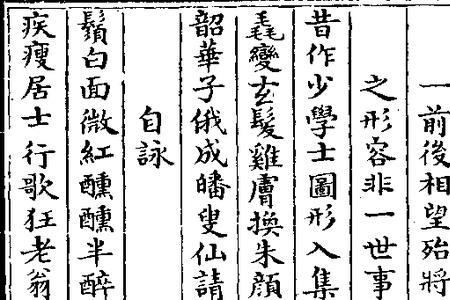 一前後相望殆將
之形容非一世事
昔作少學士圖形入集
毳變玄髮雞膚換朱顔
韶華子俄成皤叟仙請
自詠
鬚白面微紅醺醺半醉
疾瘦居士行歌狂老翁